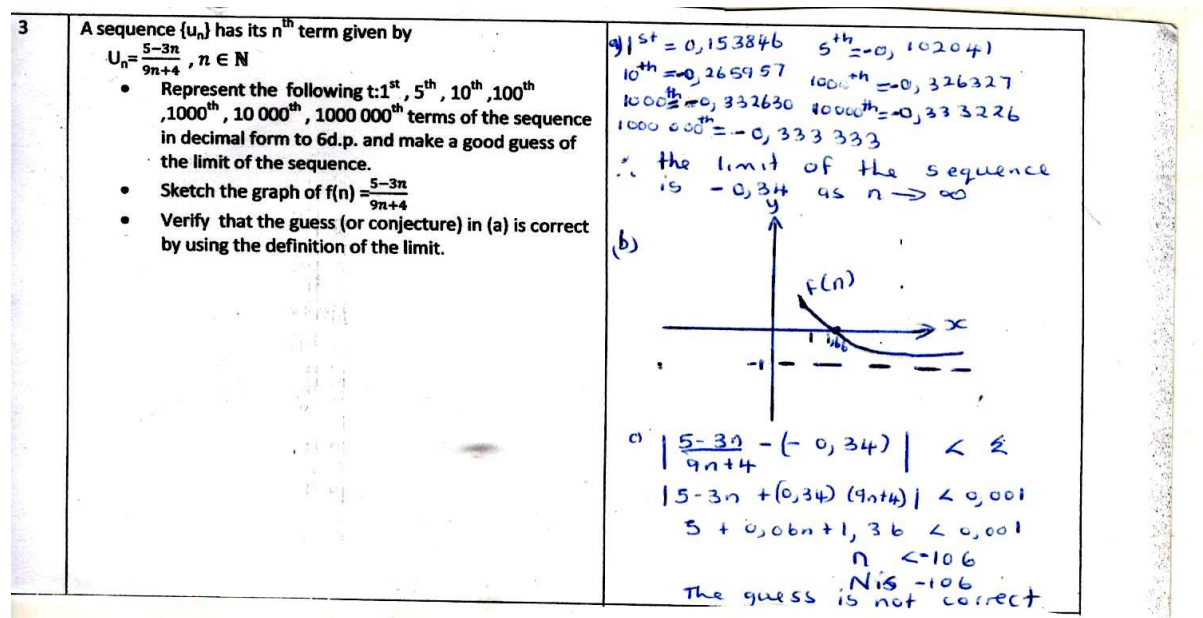 3
A sequence {uₙ} has its nᵗʰ term given by
Uₙ= (5−3n)/(9n+4) , n ∈ N
• Represent the following t:1ˢᵗ , 5ᵗʰ , 10ᵗʰ ,100ᵗʰ
,1000ᵗʰ , 10 000ᵗʰ , 1000 000ᵗʰ terms of the sequence
in decimal form to 6d.p. and make a good guess of
the limit of the sequence.
• Sketch the graph of f(n) = (5−3n)/(9n+4)
• Verify that the guess (or conjecture) in (a) is correct
by using the definition of the limit.
a) 1st = 0,153846 5th = -0,102041
10th = -0,265957 100th = -0,326327
1000th = -0,332630 10000th = -0,333226
1000 000th = -0,333 333
∴ the limit of the sequence
is - 0,34 as n → ∞
b)
y
f(n)
x
1 1,66
-1
c) | (5-3n)/(9n+4) - (- 0,34) | < ε
|5-3n + (0,34) (9n+4)| < 0,001
5 + 0,06n + 1,36 < 0,001
n < -106
N is -106
The guess is not correct